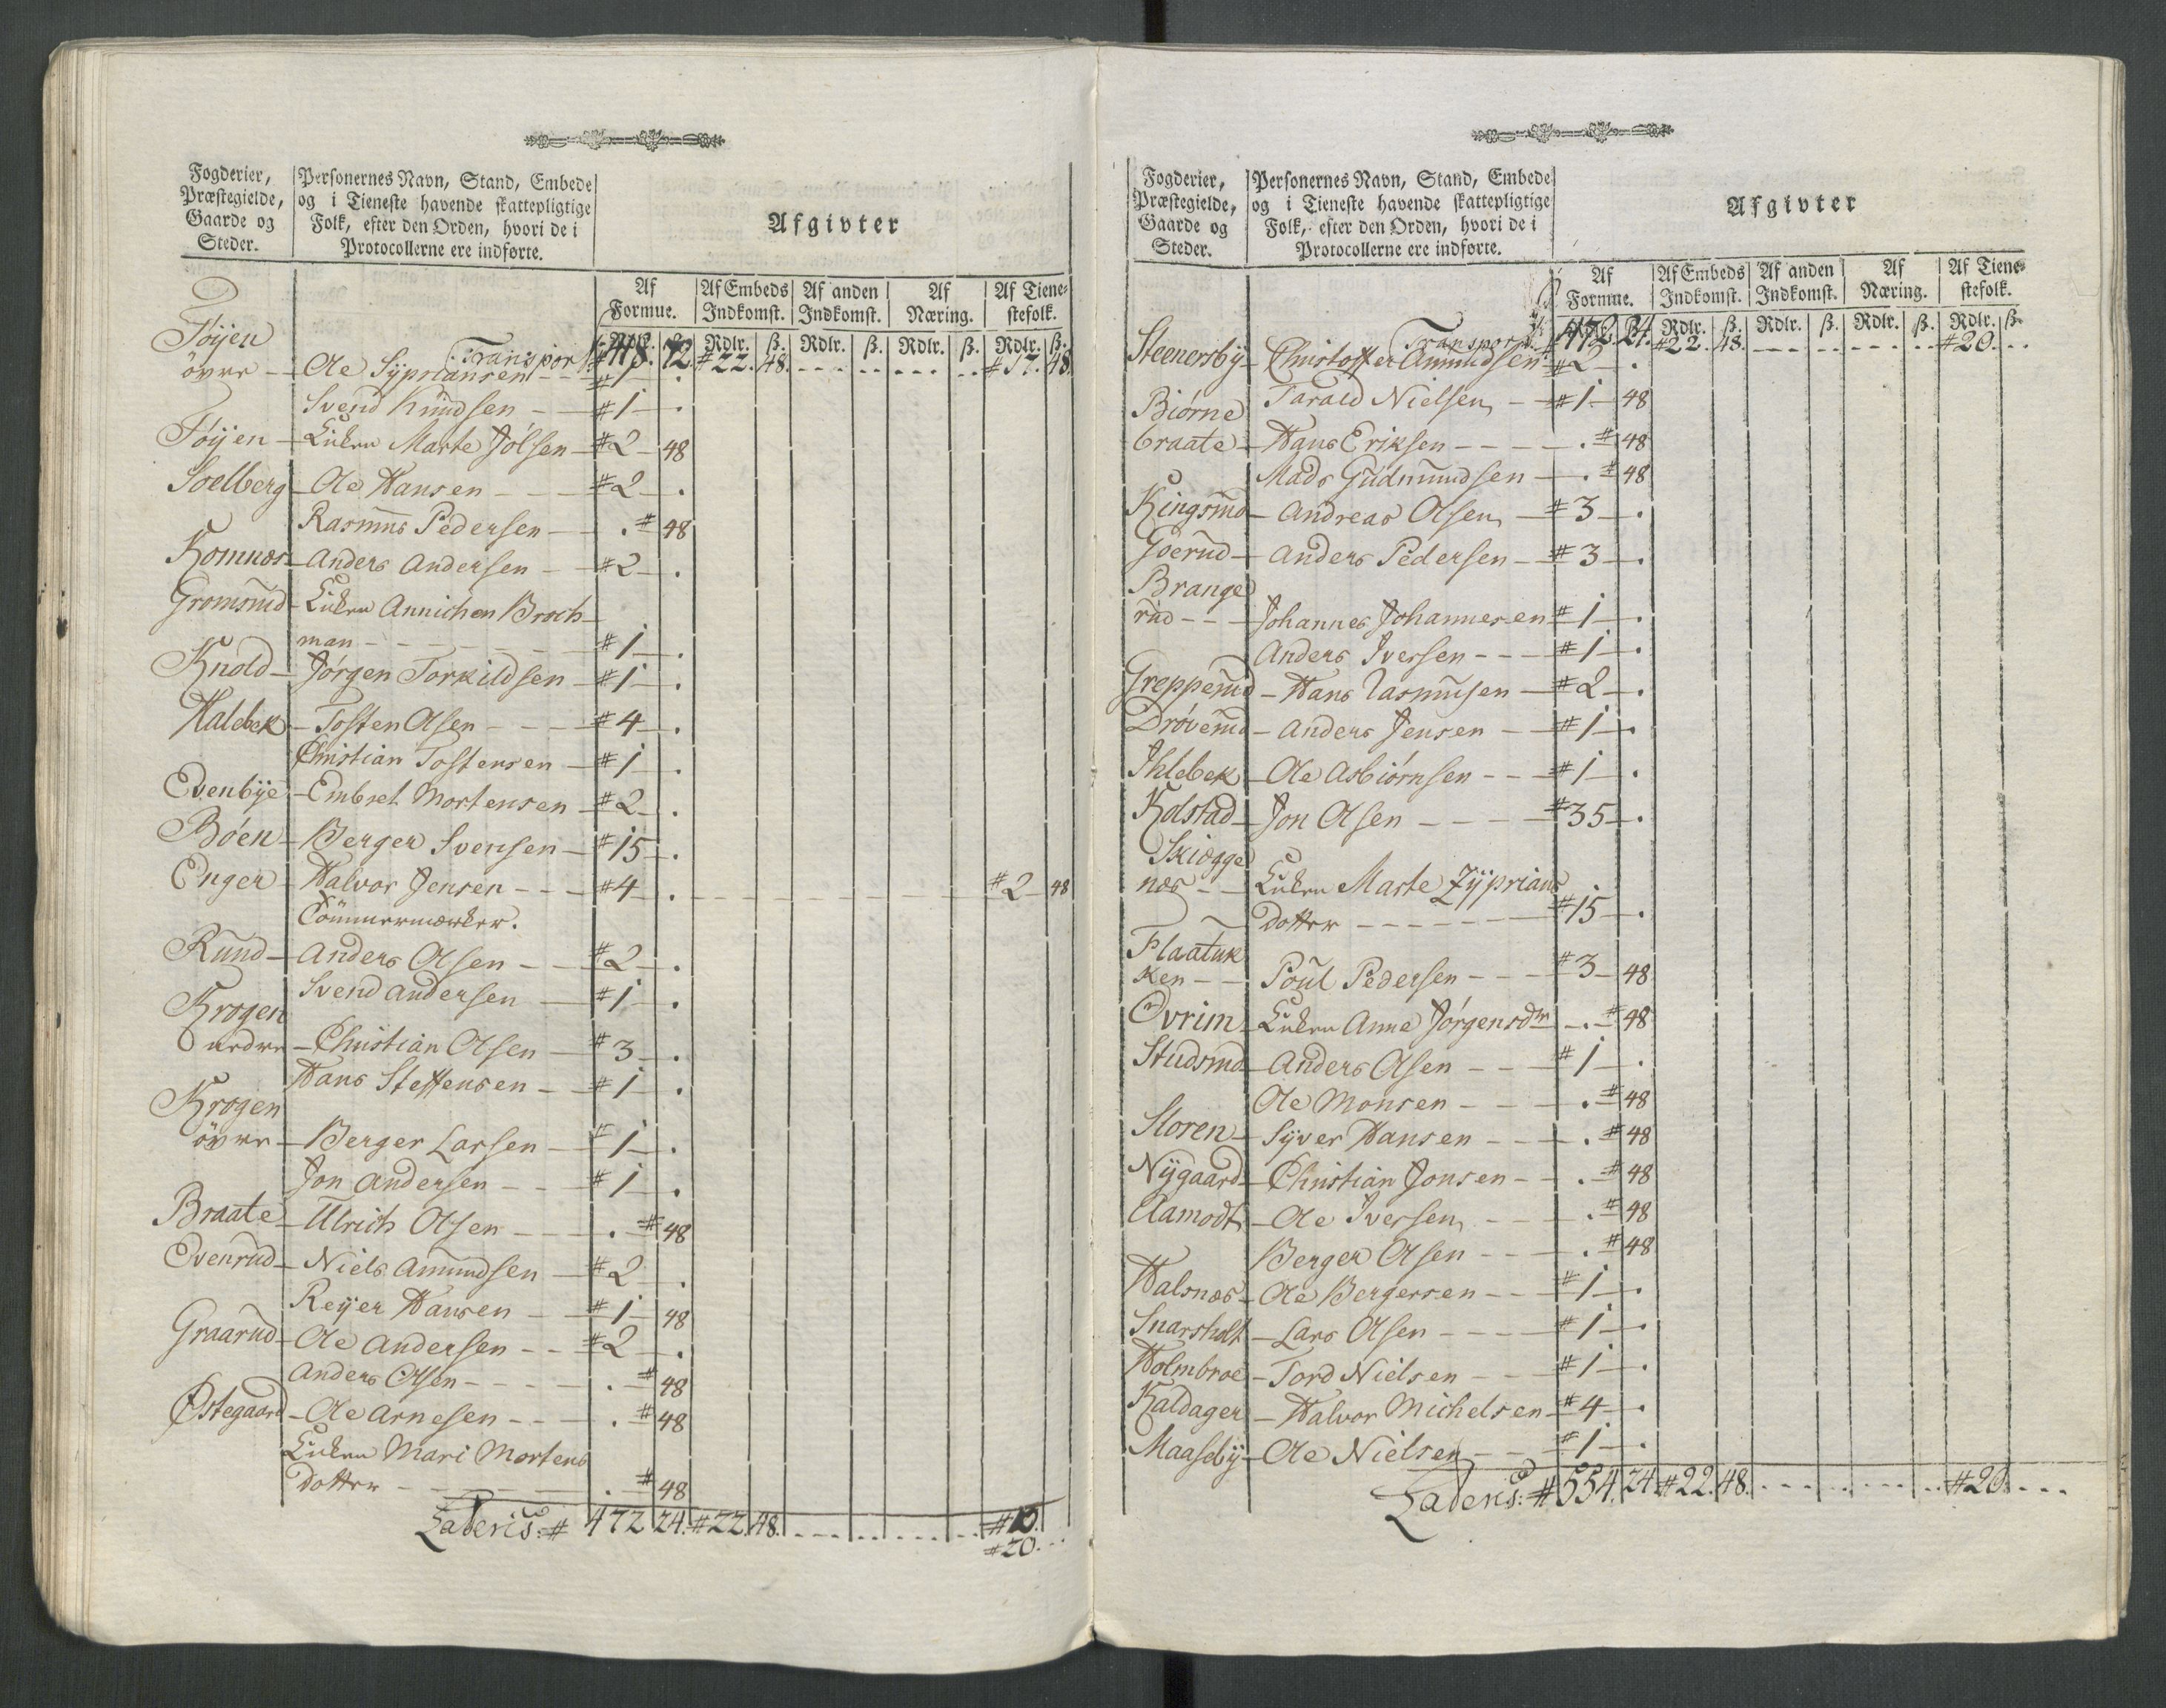 Fogderier, Præstegielde, Gaarde og Steder.
Personernes Navn, Stand, Embede og i Tieneste havende skattepligtige Folk, efter den Orden, hvori de i Protocollerne ere indførte.
Afgivter
Af Formue. Af Embeds Indkomst. Af anden Indkomst. Af Næring. Af Tienestefolk.
Rdlr. ß. Rdlr. ß. Rdlr. ß. Rdlr. ß.
Transport # 22. 48. # 17. 48
Tøÿen
övre - Ole Sÿpriansen - # 1 .
Svend Knudsen - # 1 .
Tøÿen - Enken Marte Jølsen - # 2 48
Soelberg - Ole Hansen - # 2 .
Rasmus Pedersen - . # 48
Komnæs - Anders Andersen - # 2 .
Gromsrud - Enken Annichen Broch-
man - # 1 .
Knold - Jørgen Torkildsen - # 1 .
Halebek - Tosten Olsen - # 4 .
Christian Tostensen - # 1 .
Evenbÿe - Embret Mortensen - # 2 .
Bøen - Berger Svensen - # 15 .
Enger - Halvor Jensen - # 4 . # 2 48
Tømmermærker.
Ruud - Anders Olsen - # 2 .
Svend Andersen - # 1 .
Krogen
nedre - Christian Olsen - # 3 .
Hans Steffensen - # 1 .
Krogen
övre - Berger Larsen - # 1 .
Jon Andersen - # 1 .
Braate - Ulrich Olsen - . # 48
Evenrud - Niels Amundsen - # 2 .
Reÿer Hansen - # 1 48
Graarud - Ole Andersen - # 2 .
Anders Olsen - . # 48
Østegaard - Ole Arnesen - . # 48
Enken Mari Mortens
Dotter - . # 48
Lateris: # 472 24. # 22. 48.
# 20.
Fogderier, Præstegielde, Gaarde og Steder.
Personernes Navn, Stand, Embede og i Tieneste havende skattepligtige Folk, efter den Orden, hvori de i Protocollerne ere indførte.
Afgivter
Af Formue. Af Embeds Indkomst. Af anden Indkomst. Af Næring. Af Tienestefolk.
Rdlr. ß. Rdlr. ß. Rdlr. ß. Rdlr. ß.
Transport 472. 24. # 22. 48. # 20.
Steenersbÿ - Christoffer Amundsen # 2 .
Tarald Nielsen - # 1 48
Biørne
braate - Hans Eriksen - . # 48
Mads Gudmundsen - . # 48
Kingsrud - Andreas Olsen - # 3 .
Goerud - Anders Pedersen - # 3 .
Brange
rud - Johannes Johannesen # 1 .
Anders Iversen - # 1 .
Grepperud - Hans Rasmusen - # 2 .
Drøverud - Anders Jensen - # 1 .
Ihlebek - Ole Asbiørnsen - # 1 .
Kolstad - Jon Olsen - # 35 .
Skiægge
næs - Enken Marte Zÿprians
Dotter - # 15 .
Flaatuk
ken - Poul Pedersen - # 3 48
Ovrim - Enken Anne Jørgensdtr - . # 48
Studsrud - Anders Olsen - # 1 .
Ole Monsen - . # 48
Storen - Sÿver Hansen - . # 48
Nÿgaard - Christian Jonsen - . # 48
Aamodt - Ole Iversen - . # 48
Berger Olsen - . # 48
Halsnæs - Ole Bergersen - # 1 .
Snarsholt - Lars Olsen - # 1 .
Holmbroe - Tord Nielsen - # 1 .
Kaldager - Halvor Michelsen - # 4 .
Maasebÿ - Ole Nielsen - # 1 .
Lateris: # 554. 24 # 22. 48. # 20.